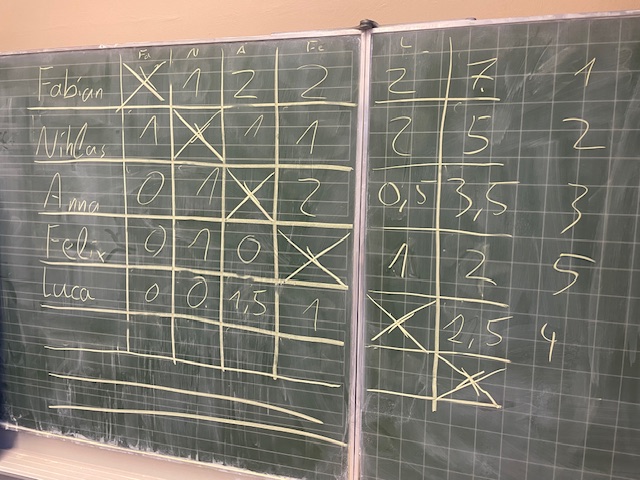 Fa N A Fe L
Fabian X 1 2 2 2 7 1
Niklas 1 X 1 1 2 5 2
Anna 0 1 X 2 0,5 3,5 3
Felix 0 1 0 X 1 2 5
Luca 0 0 1,5 1 X 2,5 4
X